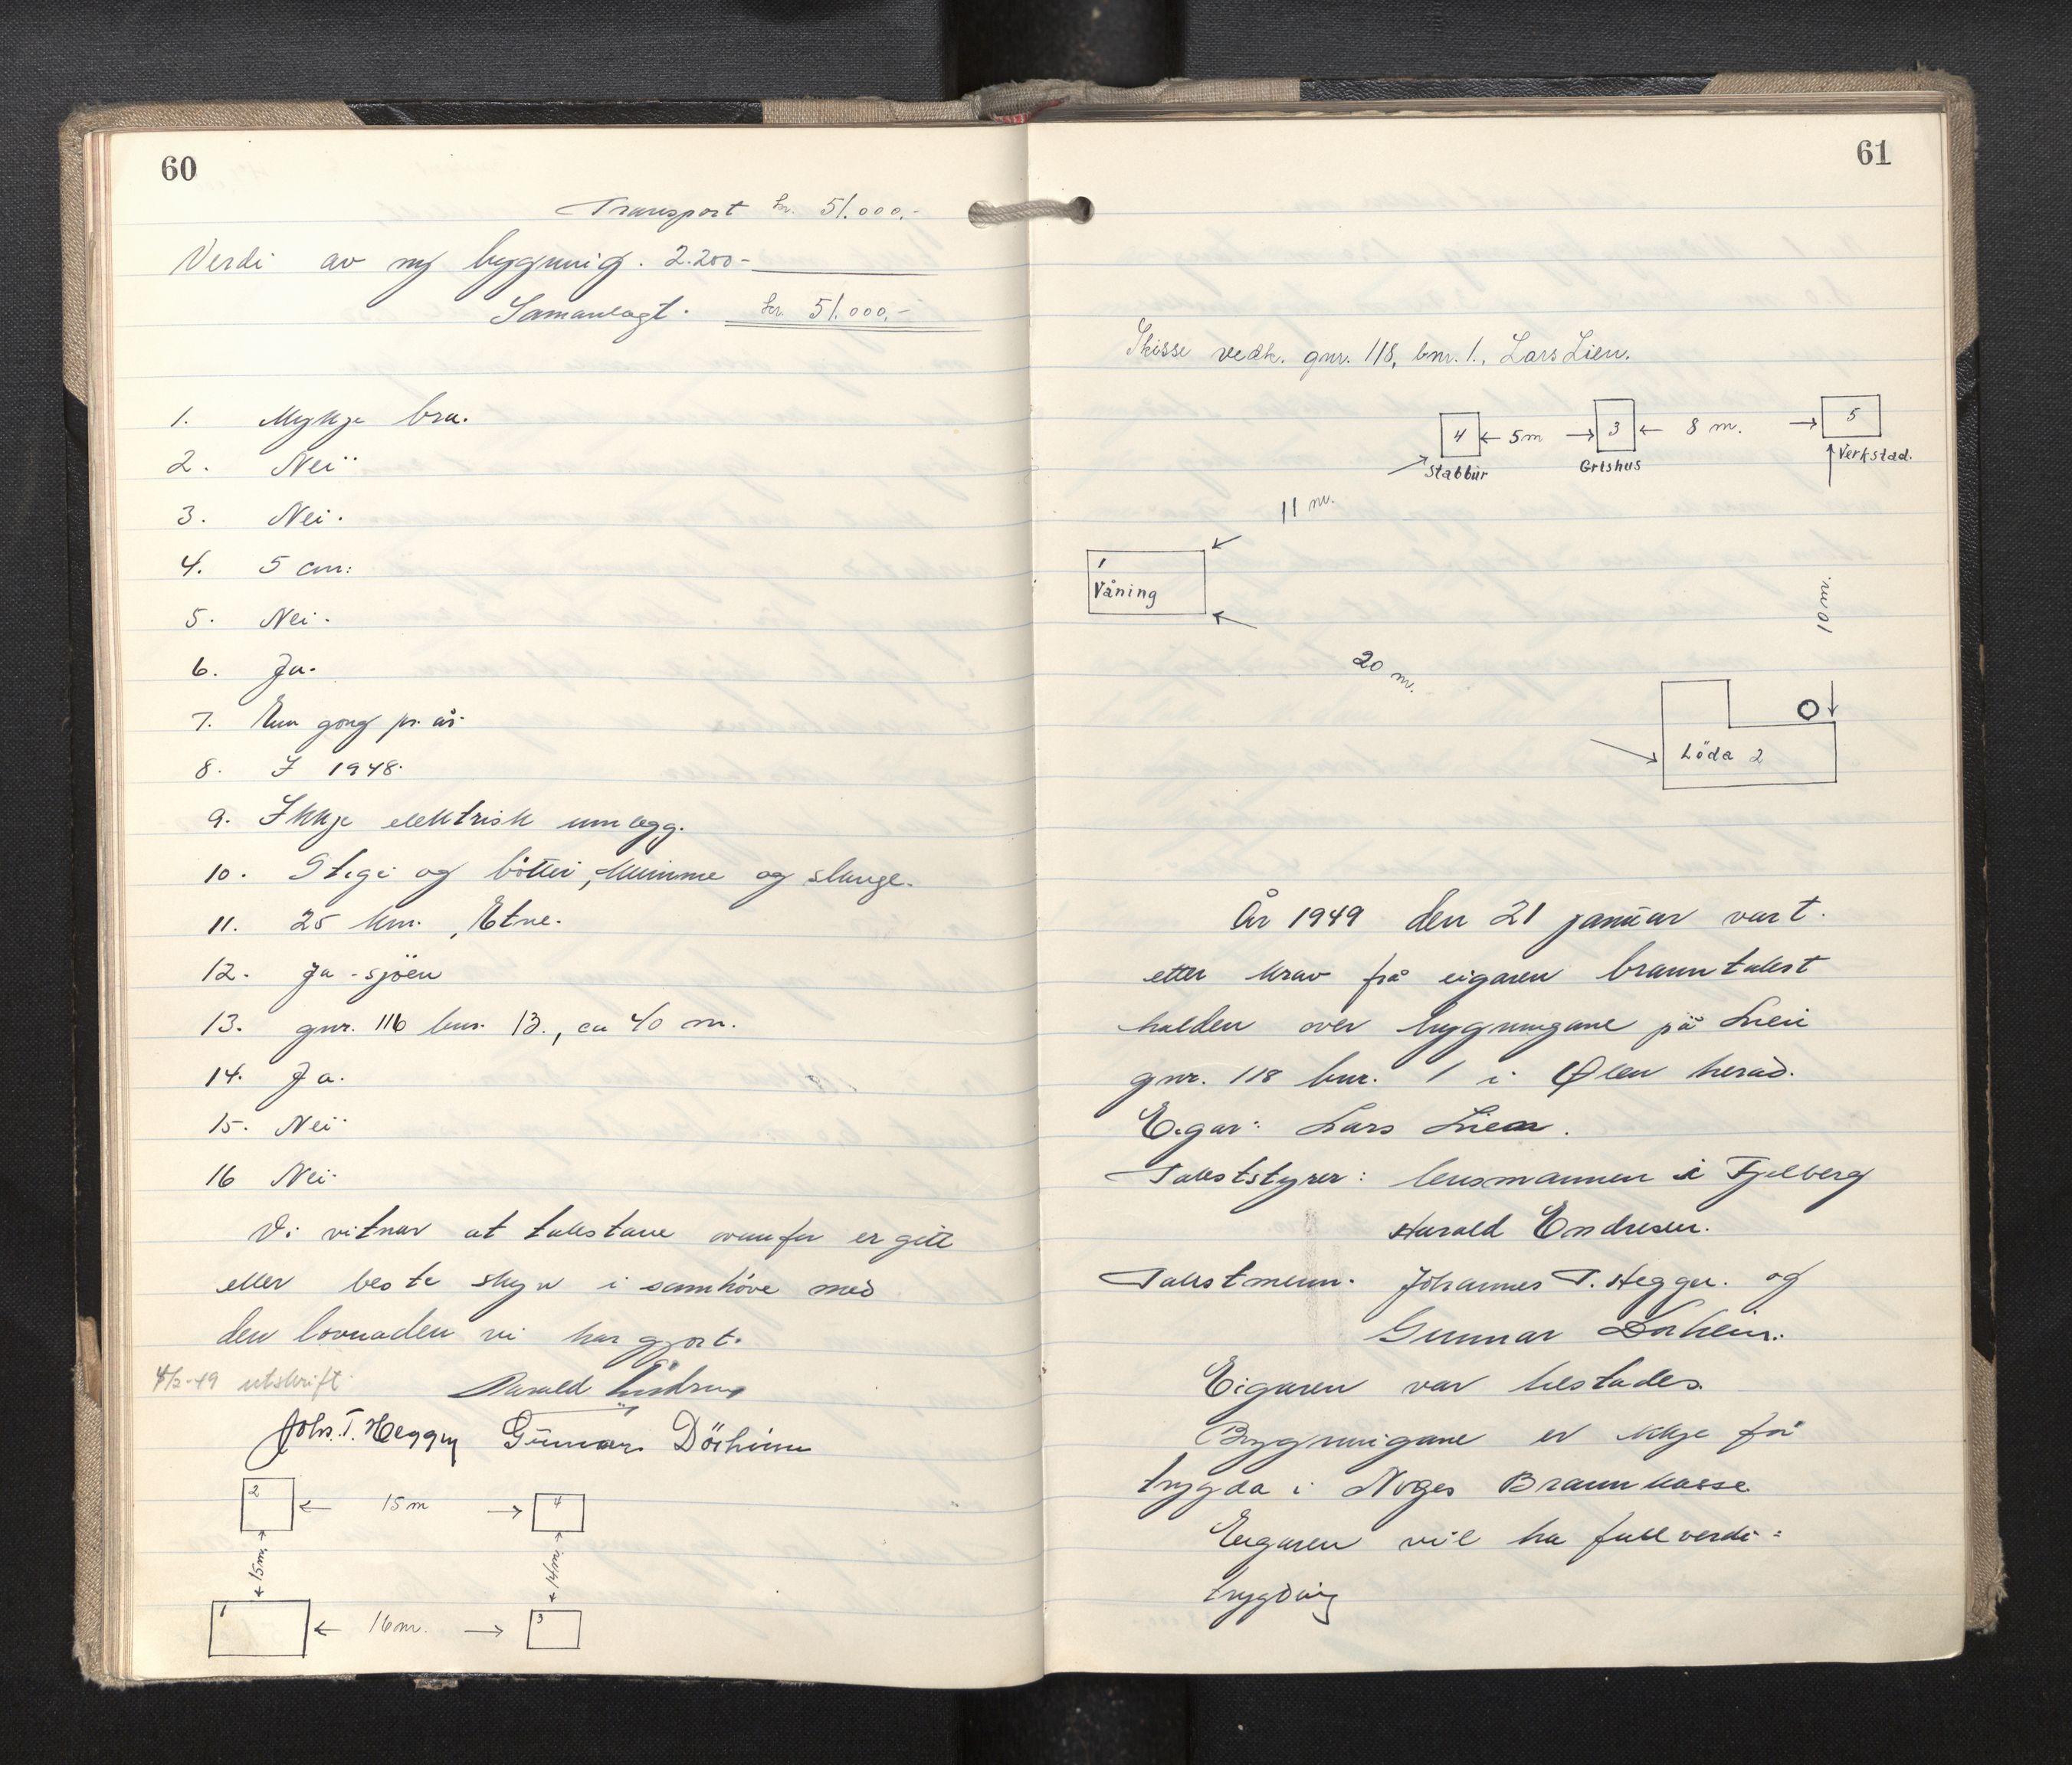 60
Transport kr. 51.000,-
Verdi av ny bygning. 2.200-
Samanlagt. kr. 51.000,-
1. Mykje bra.
2. Nei
3. Nei.
4. 5 cm.
5. Nei.
6. Ja.
7. Ein gong pr. år.
8. I 1948.
9. Ikkje elektrisk innlegg.
10. Stige og bötter, kumme og slange.
11. 25 km. Etne.
12. Ja - sjöen
13. gnr. 116 bnr. 13., ca 40 m.
14. Ja.
15. Nei.
16 Nei.
Vi vitnar at takstane ovanfor er gitt
etter beste skyn i samhöve med
den lovnaden vi har gjort.
4/2-49 utskrift.
Harald Endresen
Johs. T. Heggen Gunnar Dörheim
2 15m 4
15m. 14m.
1 16m. 3
61
Skisse vedk. gnr. 118, bnr. 1., Lars Lien.
4 5m 3 8 m. 5
Stabbur Grishus Verkstad.
11 m.
1
Våning
10 m.
20 m.
Löda 2
År 1949 den 21 januar vart
etter krav frå eigaren branntakst
halden over bygningane på Lien
gnr. 118 bnr. 1 i Ølen herad.
Eigar: Lars Lien.
Takststyrer: lensmannen i Fjelberg
Harald Endresen.
Takstmenn. Johannes T. Heggen. og
Gunnar Dörheim.
Eigaren var tilstades.
Bygningane er ikkje för
trygda i Noges Brannkasse
Eigaren vil ha fullverdi-
trygding